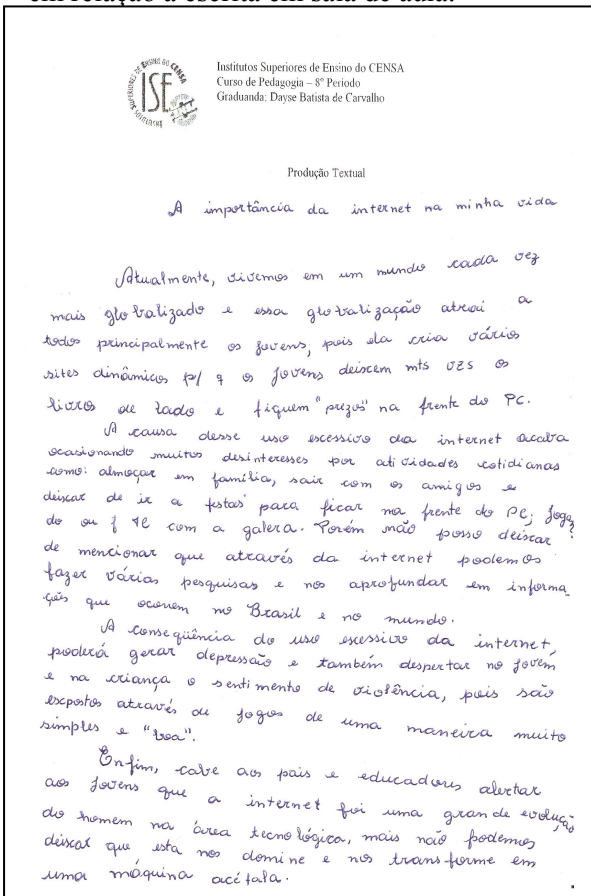 em relação à escrita em sala de aula.
INSTITUTOS SUPERIORES DE ENSINO DO CENSA
ISE
Institutos Superiores de Ensino do CENSA
Curso de Pedagogia – 8º Período
Graduanda: Dayse Batista de Carvalho
Produção Textual
A importância da internet na minha vida
Atualmente, vivemos em um mundo cada vez
mais globalizado e essa globalização atrai a
todos principalmente os jovens, pois ela cria vários
sites dinâmicos p/ q os jovens deixem mts vzs os
livros de lado e fiquem "prezos" na frente do PC.
A causa desse uso excessivo da internet acaba
ocasionando muitos desinteresses por atividades cotidianas
como: almoçar em família, sair com os amigos e
deixar de ir a festas para ficar na frente do PC; jogan
do ou f tc com a galera. Porém não posso deixar
de mencionar que através da internet podemos
fazer várias pesquisas e nos aprofundar em informa_
ções que ocorrem no Brasil e no mundo.
A conseqüência do uso excessivo da internet,
poderá gerar depressão e também despertar no jovem
e na criança o sentimento de violência, pois são
expostos através de jogos de uma maneira muito
simples e "boa".
Enfim, cabe aos pais e educadores alertar
aos jovens que a internet foi uma grande evolução
do homem na área tecnológica, mais não podemos
deixar que esta nos domine e nos transforme em
uma máquina acéfala.